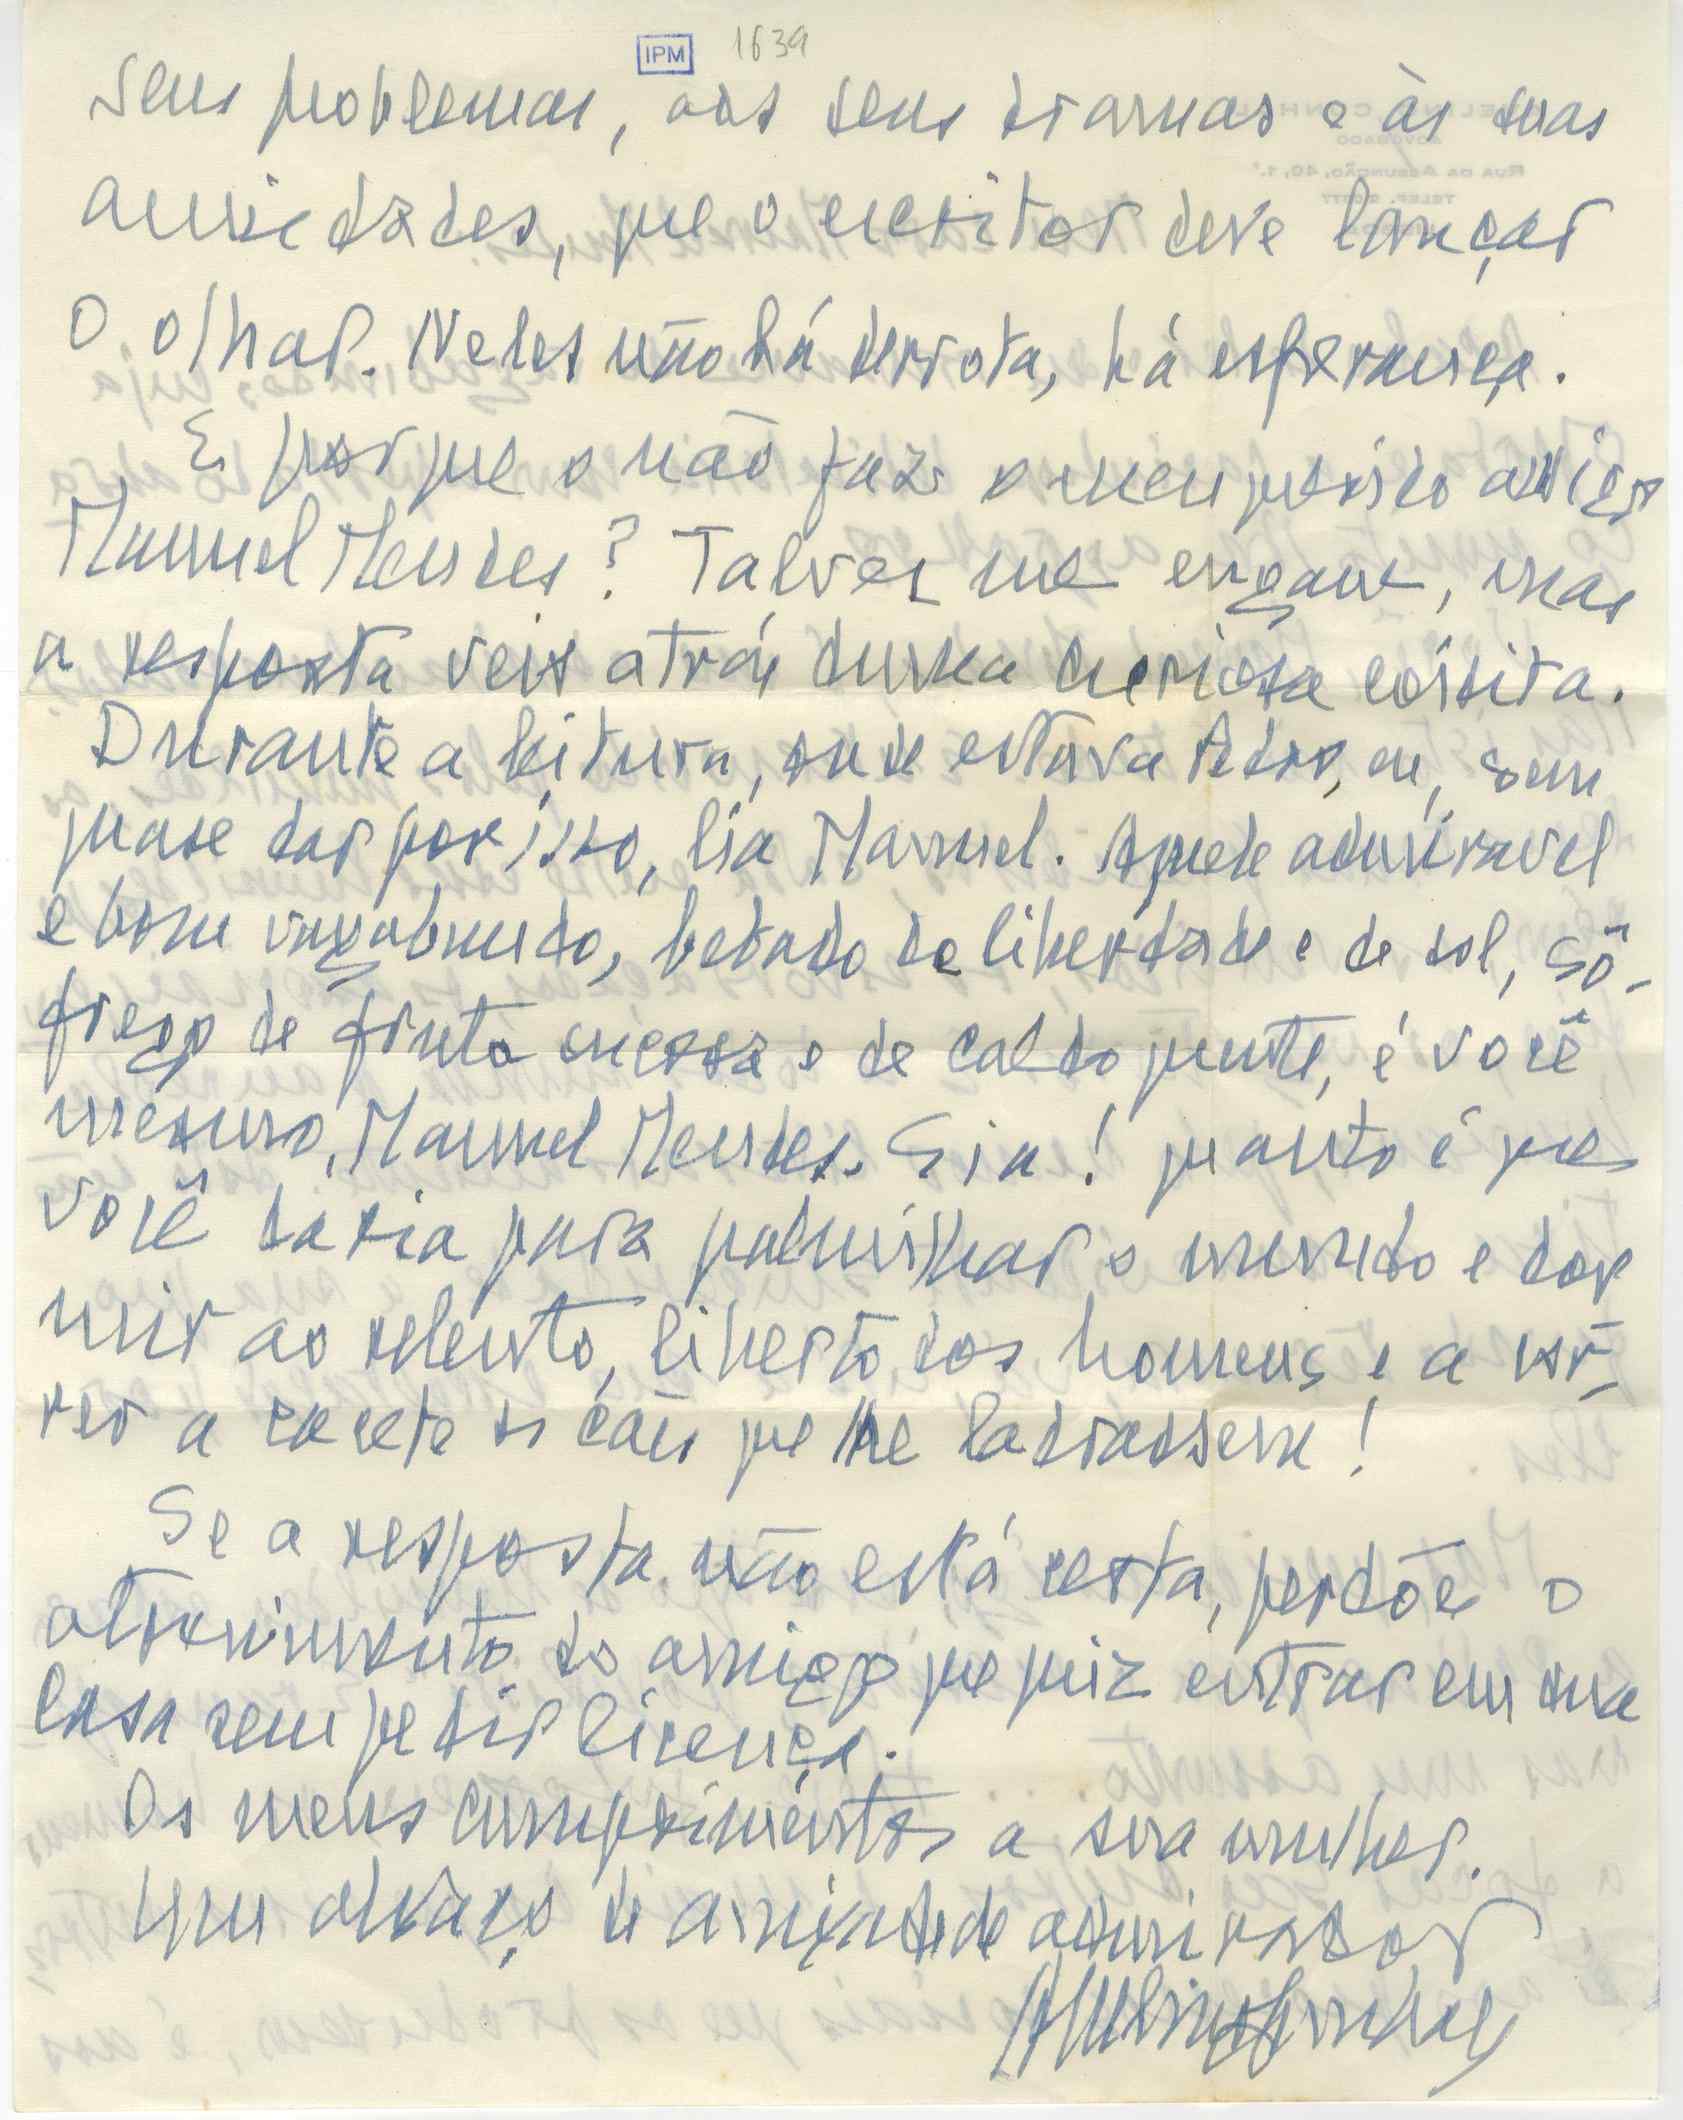 IPM 1639
seus problemas, aos seus dramas e às suas
ansiedades, que o escritor deve lançar
o olhar. Neles não há derrota, há esperança.
E porque o não faz o meu querido amigo
Manuel Mendes? Talvez me engane, mas
a resposta veio através duma curiosa
Durante a leitura, onde estava Pedro, eu, sem
quase dar por isso, lia Manuel. Aquele admiravel
e bom vagabundo, bebado de liberdade e de sol, sô-
frego de fruta sucosa e de caldo quente, é você
mesmo, Manuel Mendes. Eia! quanto é que
você daria para palmilhar o mundo e dor
mir ao relento, liberto dos homens e a var-
rer a cacete os cães que lhe ladrassem!
Se a resposta não está certa, perdôe o
atrevimento do amigo que quiz entrar em sua
casa sem pedir licença.
Os meus cumprimentos a sua mulher.
Um abraço de amizade do admirador